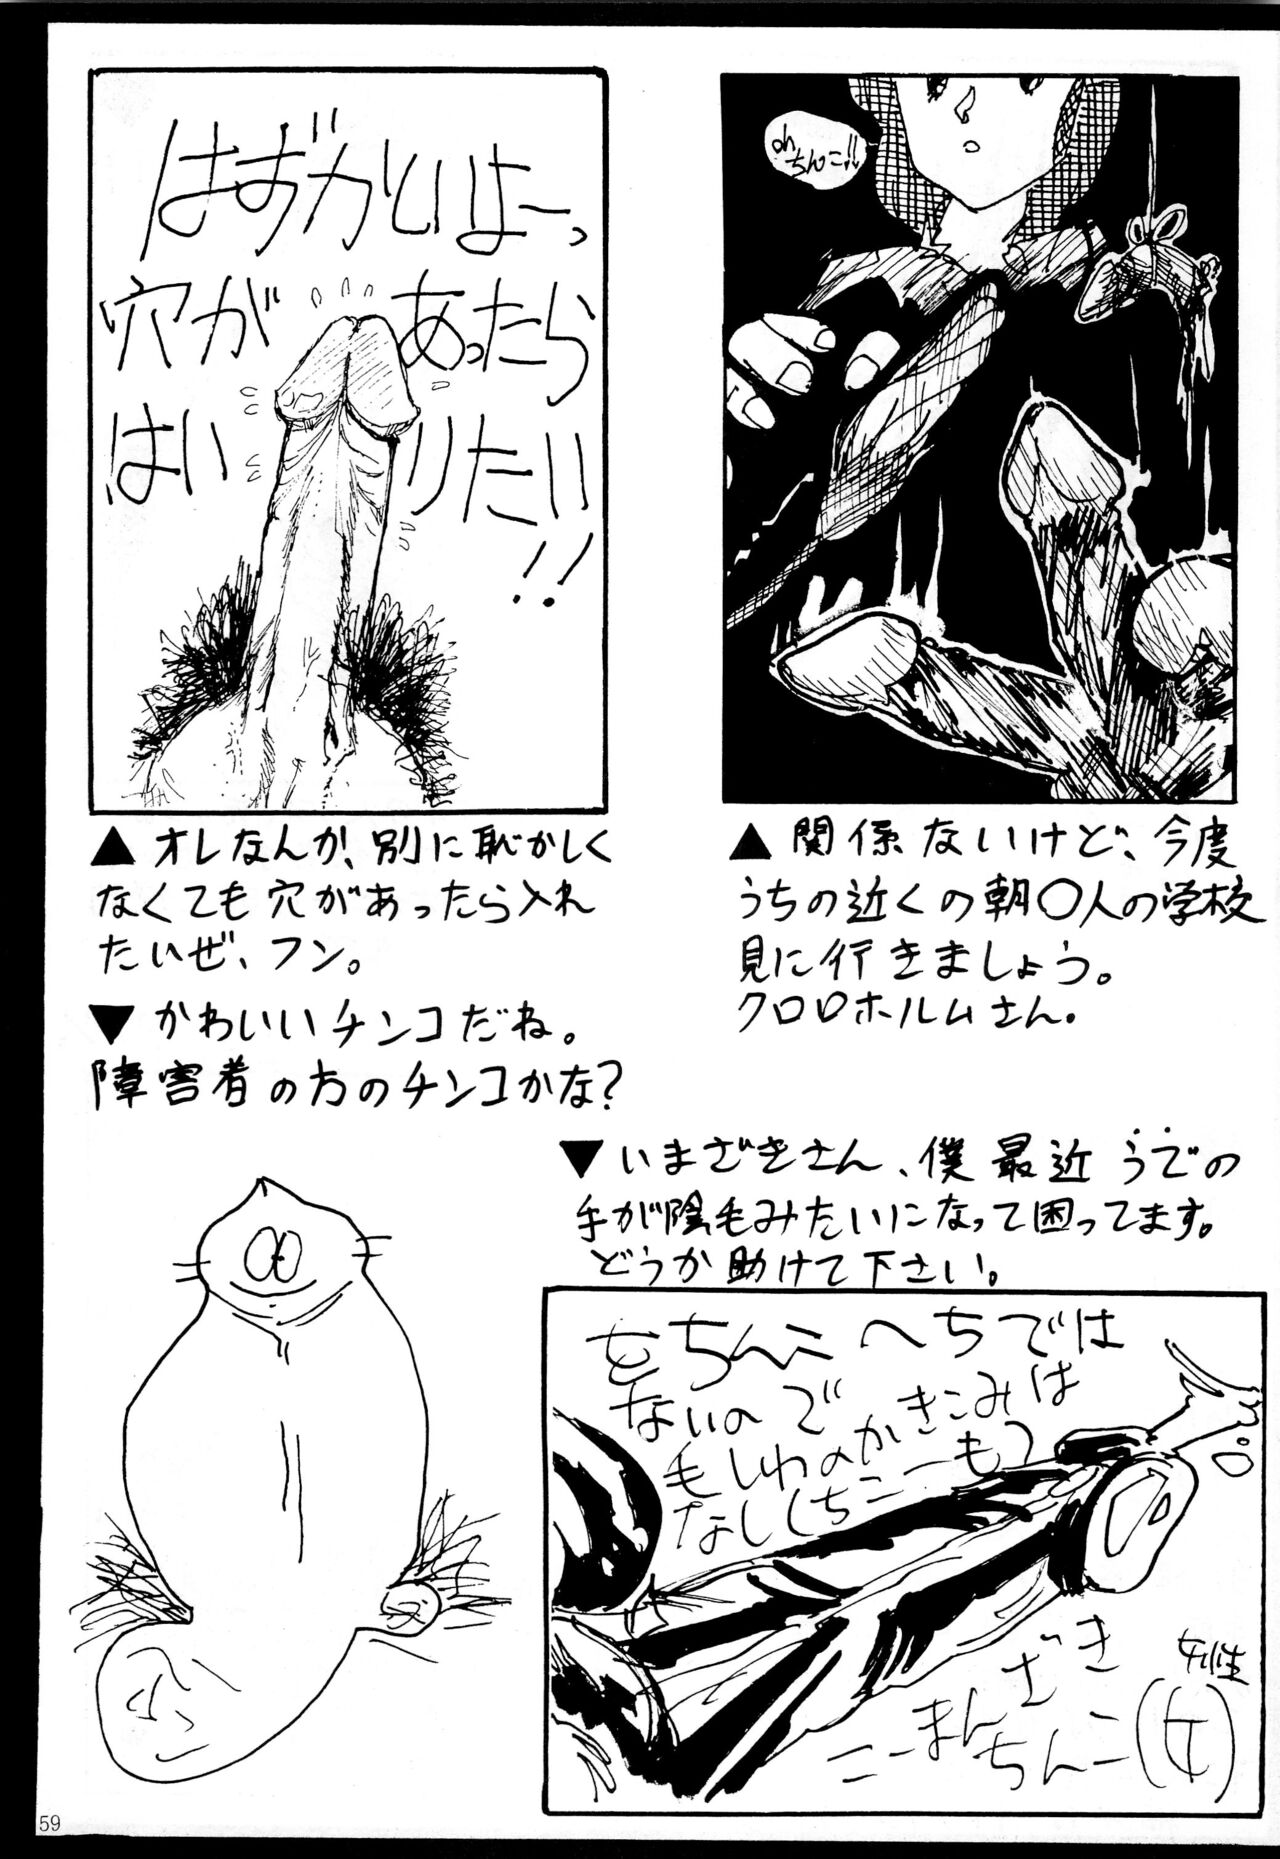 はずかしいよーっ
穴があったら
はいりたい!!
oh
ちんこ!!
▲オレなんか、別に恥かしく
なくても穴があったら入れ
たいぜ、フン。
▲関係ないけど、今度
うちの近くの朝〇人の学校
見に行きましょう。
クロロホルムさん。
▼かわいいチンコだね。
障害者の方のチンコかな？
▼いまざきさん、僕最近うでの
手が陰毛みたいになって困ってます。
どうか助けて下さい。
ちんこ
では
ないので
かきこみは
なし
ちんこ(女)
女性
59